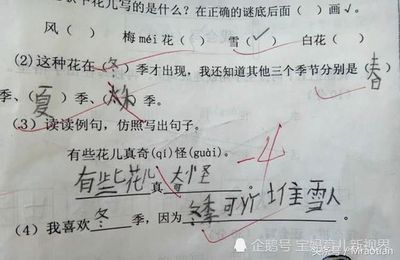 花儿写的是什么？在正确的谜底后面（ ）画√。
风（ ） 梅 méi 花（ ） 雪（√） 白花（ ）
(2) 这种花在（冬）季才出现，我还知道其他三个季节分别是（春）
季、（夏）季、（秋）季。
(3) 读读例句，仿照写出句子。
有些花儿真奇(qí)怪(guài)。
-4
有些花儿真奇怪。
(4) 我喜欢冬季，因为冬季可以堆雪人。
企鹅号 宝妈育儿新视界
头条号 / Miraotian